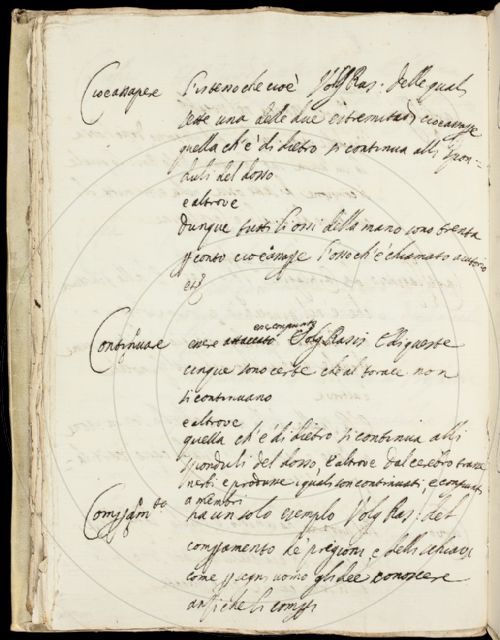 Cioeassapere l'istesso che cioè Volg Ras: delle quali
sette una delle due estremitadi, cioeassape
quella ch'è di dietro si continua alli spon=
duli del dosso
e altrove
dunque tutti li ossi della mano sono trenta
cioèassape l'osso ch'è chiamato
etc
Continuare essere attaccato esse congiunto Volg Rasis E di queste
cinque sono certe che al torace non
si continuano
e altrove
quella ch'è di dietro si continua alli
sponduli del dosso, e altrove dal cerebro trasse
nerbi e produsse, i quali son continuati, e congiunti
a membri
ha un solo esempio Volg Ras: del
de prigioni, e delli schiavi
come ogni uomo gli dee conoscere
anzi che li compri